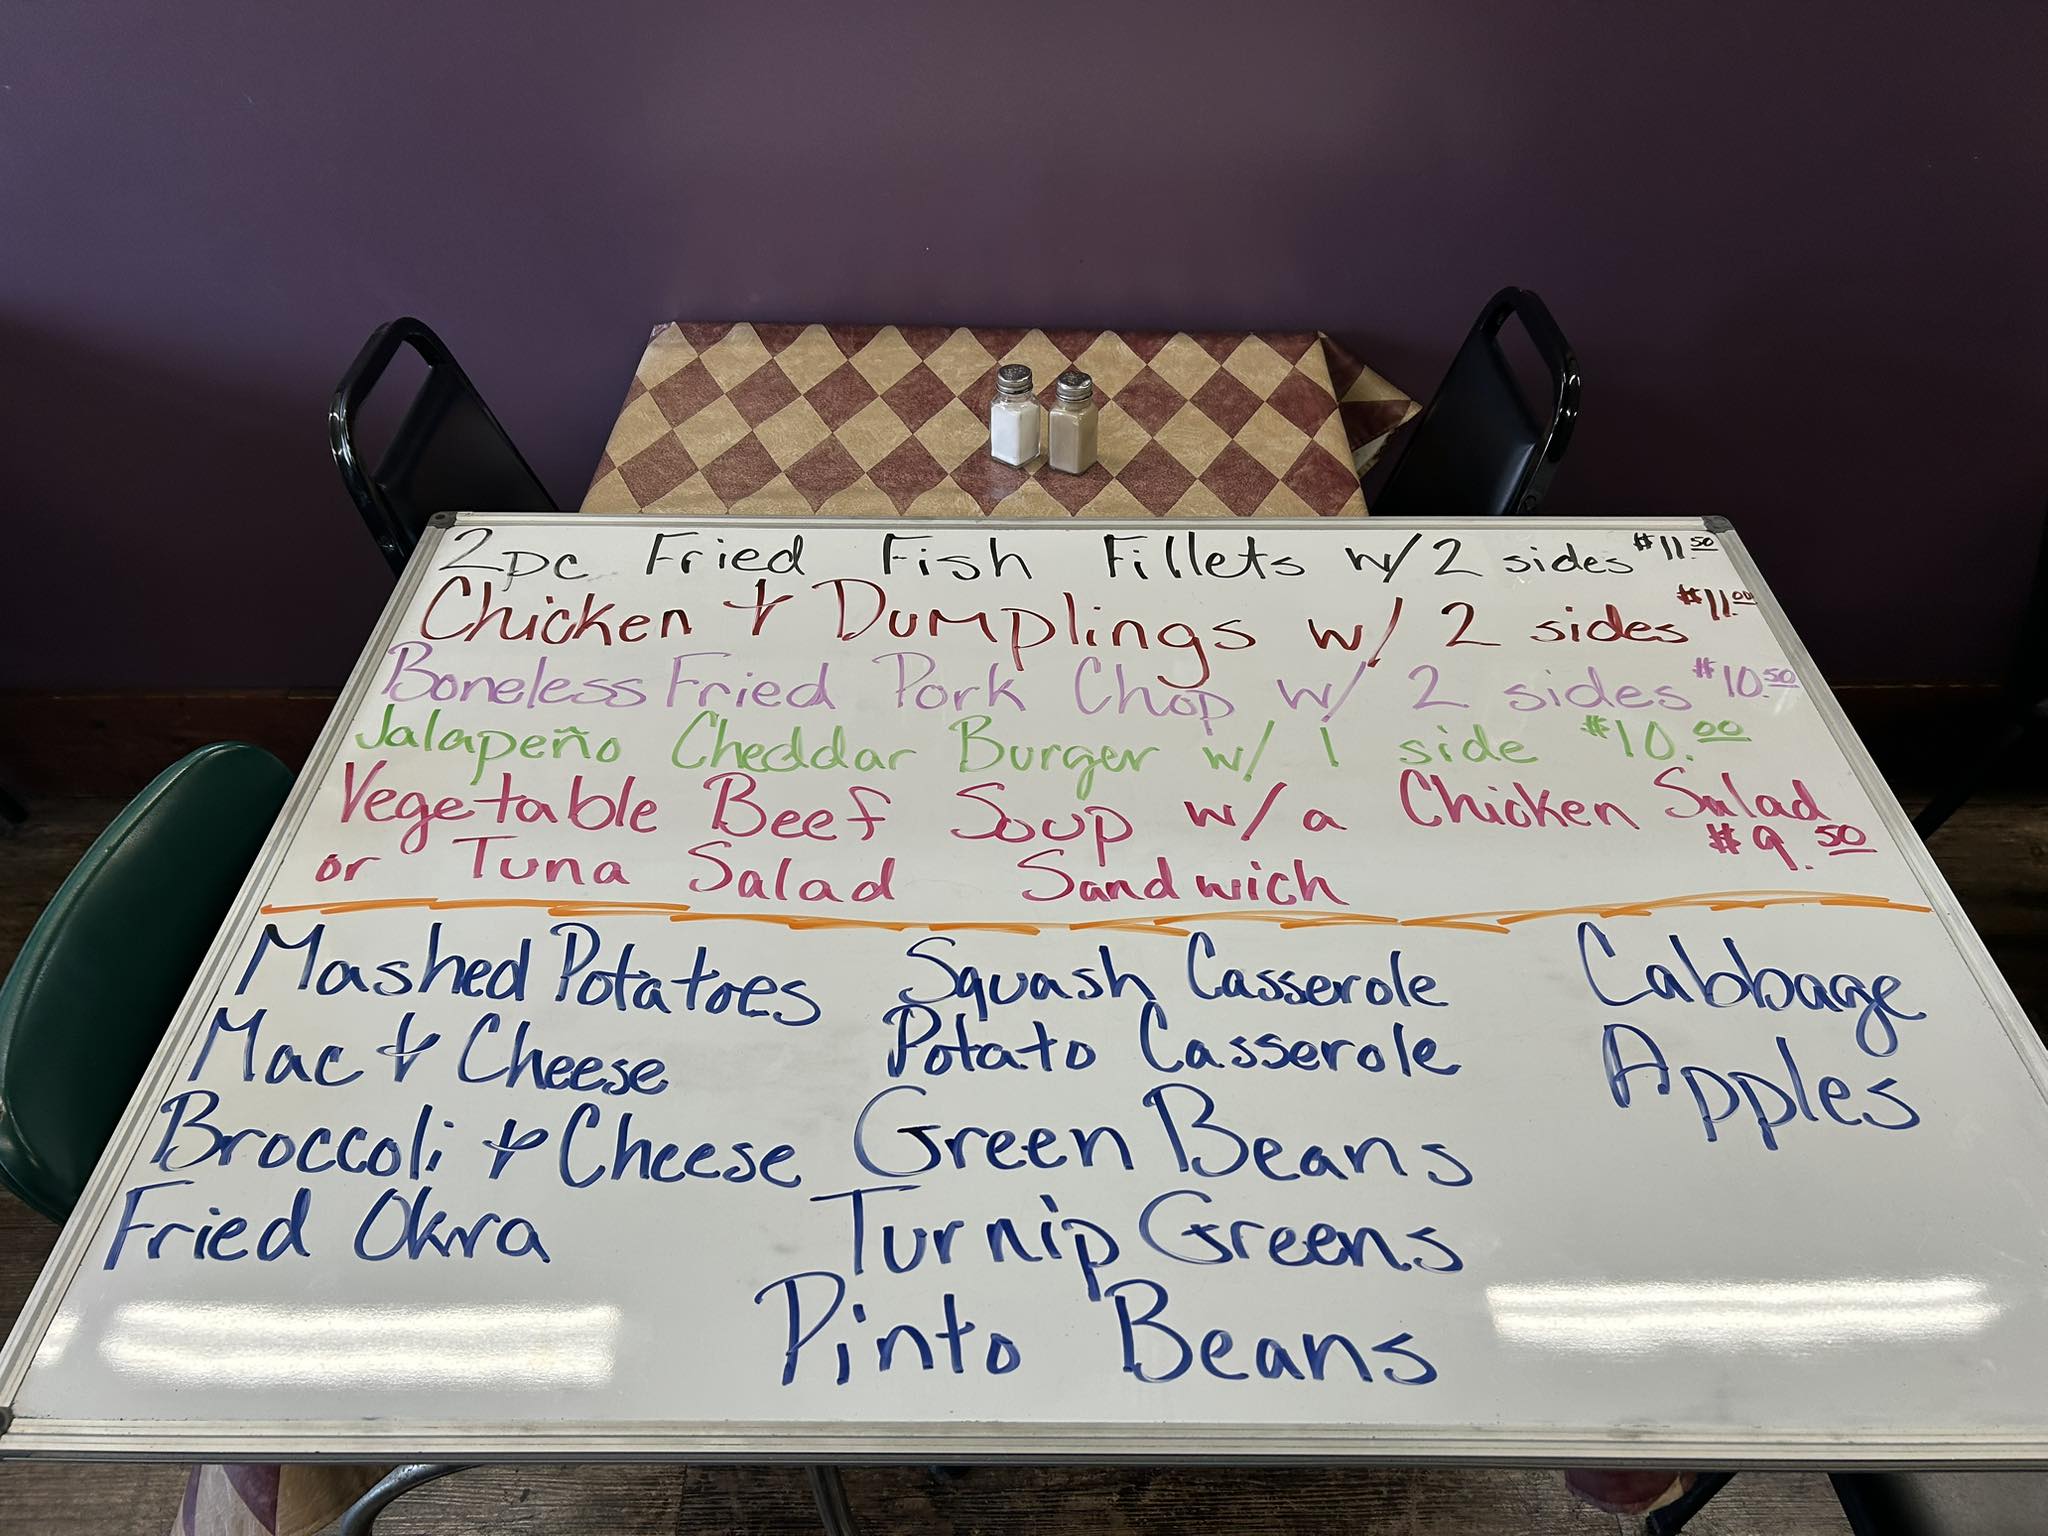 2pc Fried Fish Fillets w/ 2 sides $11.50
Chicken & Dumplings w/ 2 sides $11.00
Boneless Fried Pork Chop w/ 2 sides $10.50
Jalapeño Cheddar Burger w/ 1 side $10.00
Vegetable Beef Soup w/a Chicken Salad
or Tuna Salad Sandwich $9.50
Mashed Potatoes
Mac & Cheese
Broccoli & Cheese
Fried Okra
Squash Casserole
Potato Casserole
Green Beans
Turnip Greens
Pinto Beans
Cabbage
Apples